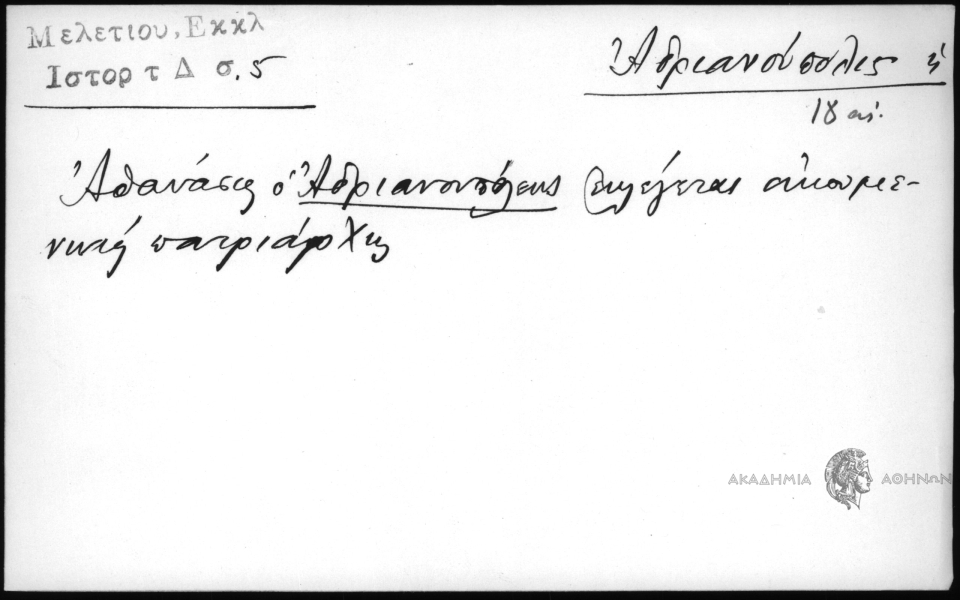 Μελετίου, Εκκλ
Ιστορ τ Δ σ. 5
Ἀδριανούπολις ἡ
18 αἰ.
Ἀθανάσιος ὁ Ἀδριανουπόλεως ἐκλέγεται οἰκουμε-
νικός πατριάρχης
ΑΚΑΔΗΜΙΑ ΑΘΗΝΩΝ